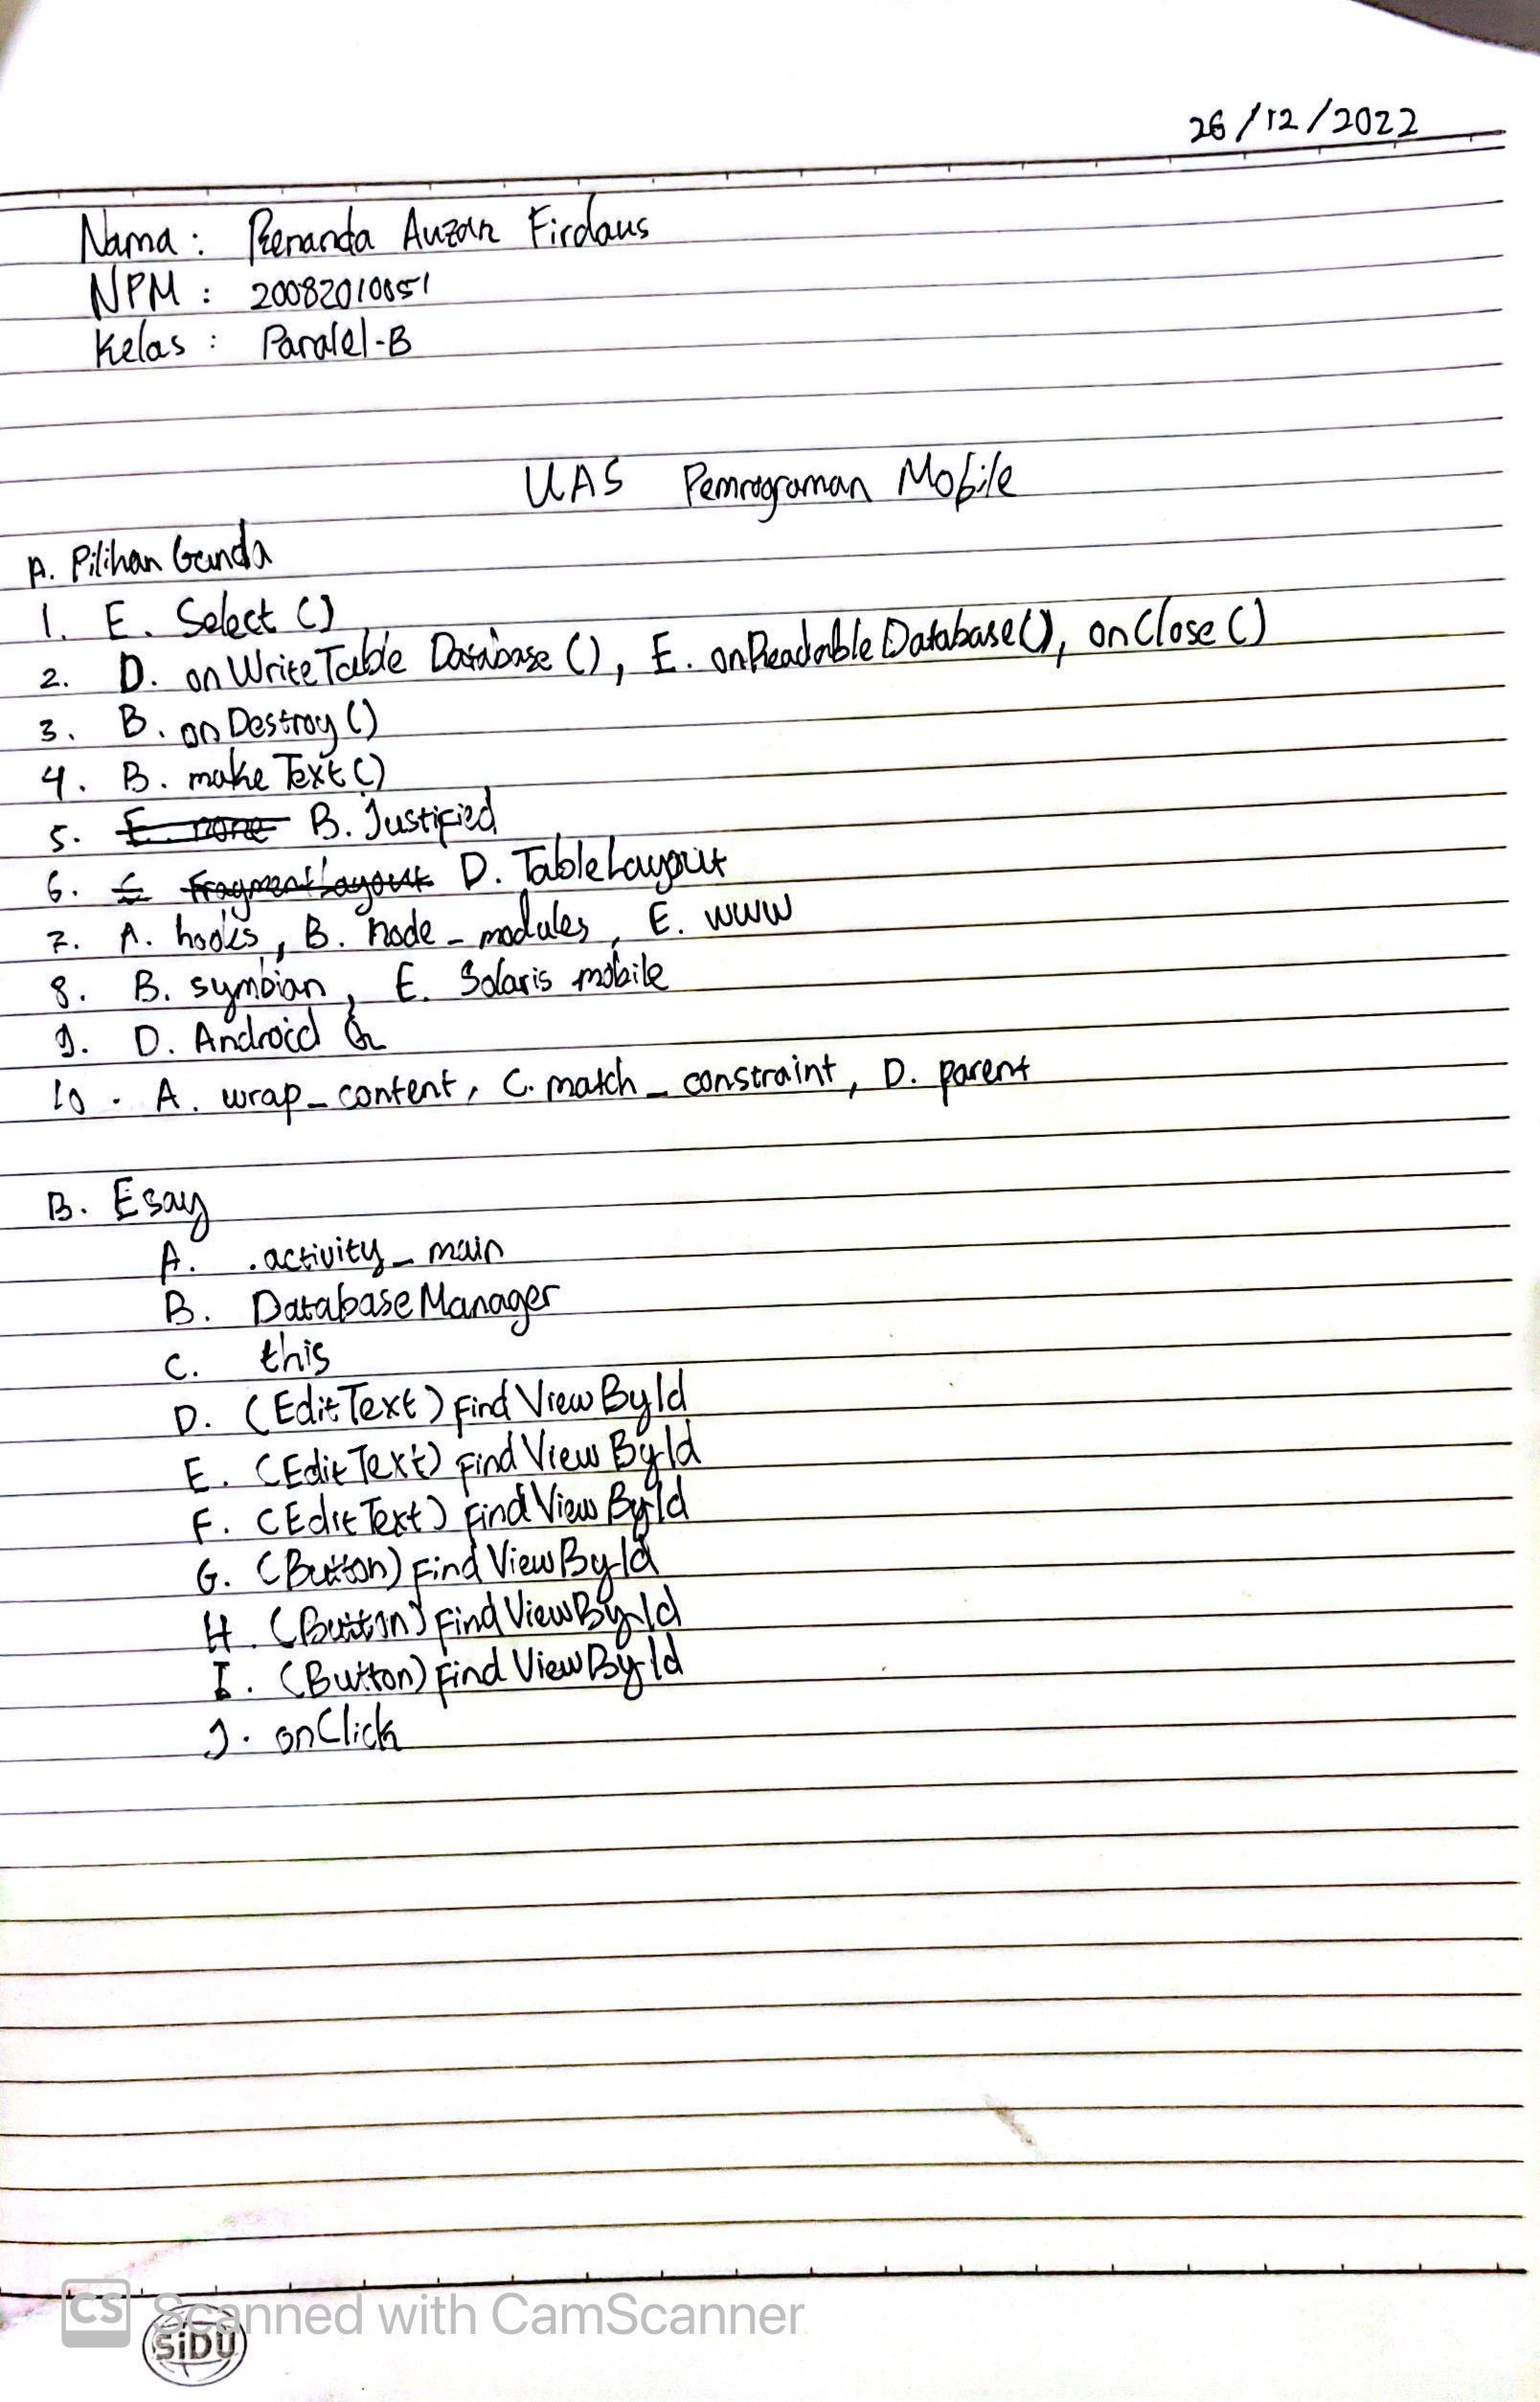 26/12/2022
Nama : Renanda Auzan Firdaus
NPM : 20082010051
Kelas : Paralel-B
UAS Pemrograman Mobile
A. Pilihan Ganda
1. E. Select ()
2. D. onWriteTable Database (), E. onReadableDatabase(), onClose ()
3. B. onDestroy ()
4. B. make Text ()
5. E. none B. Justified
6. FragmentLayout D. TableLayout
7. A. hooks, B. node_modules, E. www
8. B. symbian, E. Solaris mobile
9. D. Android Q
10. A. wrap_content, C. match_constraint, D. parent
B. Esay
A. .activity_main
B. DatabaseManager
C. this
D. (EditText) FindViewById
E. (EditText) FindViewById
F. (EditText) FindViewById
G. (Button) FindViewById
H. (Button) FindViewById
I. (Button) FindViewById
J. onClick
CS Scanned with CamScanner
SiDU